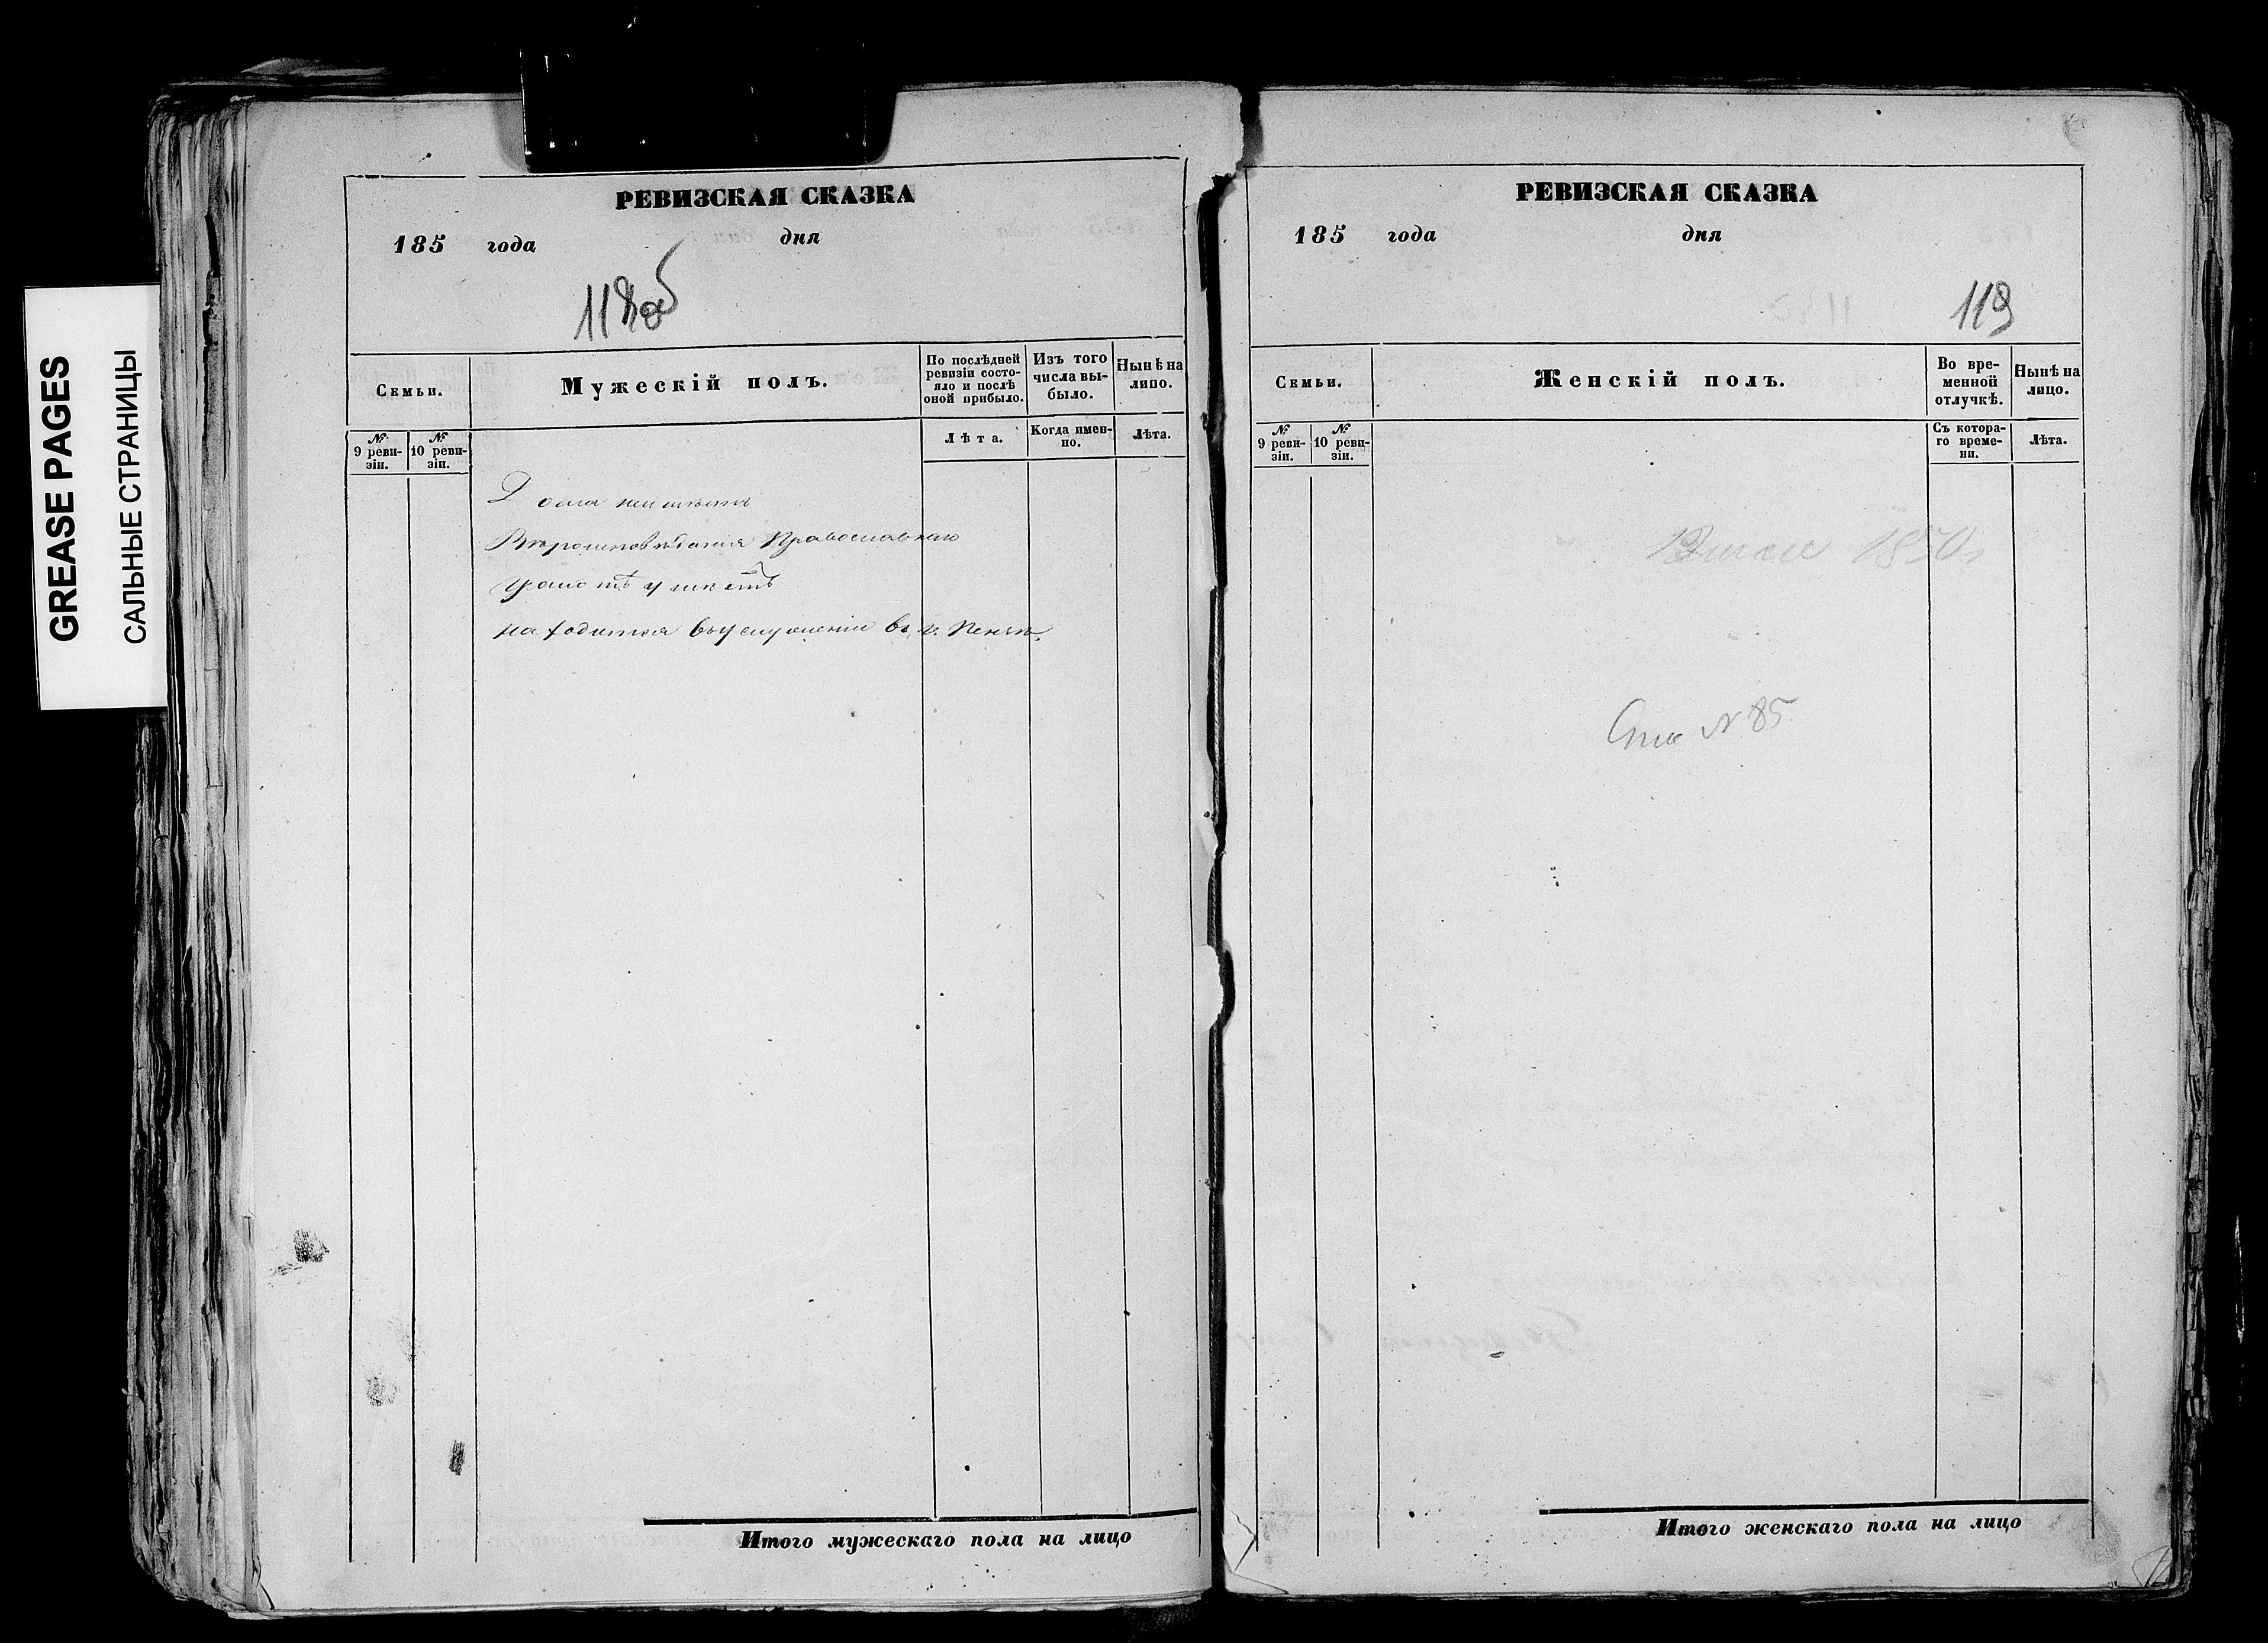 GREASE PAGES
САЛЬНЫЕ СТРАНИЦЫ
РЕВИЗСКАЯ СКАЗКА
185 года дня
118 об
Семьи.
Мужескій полъ.
По послѣдней ревизіи состояло и послѣ оной прибыло.
Изъ того числа выбыло.
Нынѣ на лицо.
№ 9 ревизіи.
№ 10 ревизіи.
Лѣта.
Когда именно.
Лѣта.
Дома неимѣетъ
Вѣроисповѣданія Православнаго
Грамотѣ умѣетъ
находится въуслуженіи въ г. Пензѣ.
Итого мужескаго пола на лицо
РЕВИЗСКАЯ СКАЗКА
185 года дня
119
Семьи.
Женскій полъ.
Во временной отлучкѣ.
Нынѣ на лицо.
№ 9 ревизіи.
№ 10 ревизіи.
Съ котораго времени.
Лѣта.
1850
№ 85
Итого женскаго пола на лицо